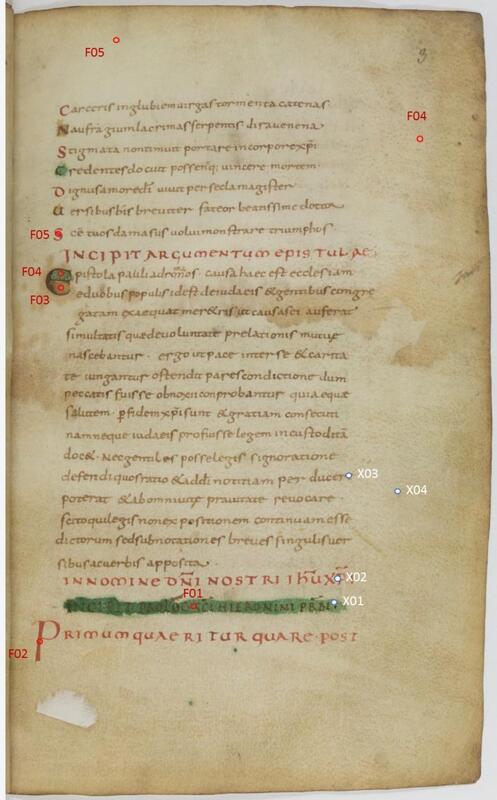 3
F05
F04
Carceris inglubiem uirgas tormenta catenas
Naufragium lacrimas serpentis dira uenena
Stigmata non timuit portare in corpore xp̄i
Credentes docuit possent q; uincere mortem
Dignus amore dī uiuit per secla magister
Uersibus his breuiter fateor beatissime doctor
F05 Sc̄e tuos damasus uolui monstrare triumphos
INCIPIT ARGUMENTUM EPISTULAE
F04 Epistola pauli ad romanos. causa haec est ecclesiam
F03 e duobus populis idest de iudaeis & gentibus congre
gatam exaequat mer&ris ut causas ei auferat
simultatis quae de uoluntate prelationis mutue
nascebantur. ergo ut pace inter se & carita
te iungantur ostendit pares condictione dum
peccatis fuisse obnoxii conprobantur quia equae
salutem. p fidem xp̄i sunt & gratiam consecuti
nam neque iudaeis profuisse legem incustoditā
doc&. Nec gentiles posse legis signoratione
defendi quos ratio & ad dī notitiam per ducere X03
poterat & ab omni uitae prauitate reuocare. X04
scito qui legis non expositionem continuam esse
dictorum sed subnotationes breues singulis uer
sibus ac uerbis apposita
IN NOMINE DN̄I NOSTRI IHŪ XP̄I X02
F01
INCIPIT PROLOG SC̄I HIERONIMI PRB̄I X01
PRIMUM QUAERITUR QUARE. POST
F02